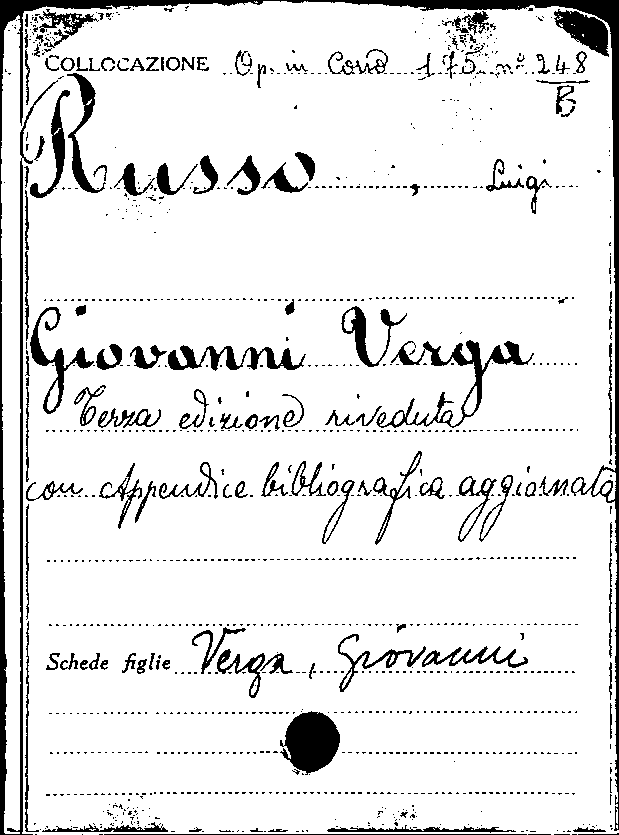 COLLOCAZIONE Op. in Cons 175 nº 248
B
Russo, Luigi
Giovanni Verga
Terza edizione riveduta
con Appendice bibliografica aggiornata
Schede figlie Verga, Giovanni